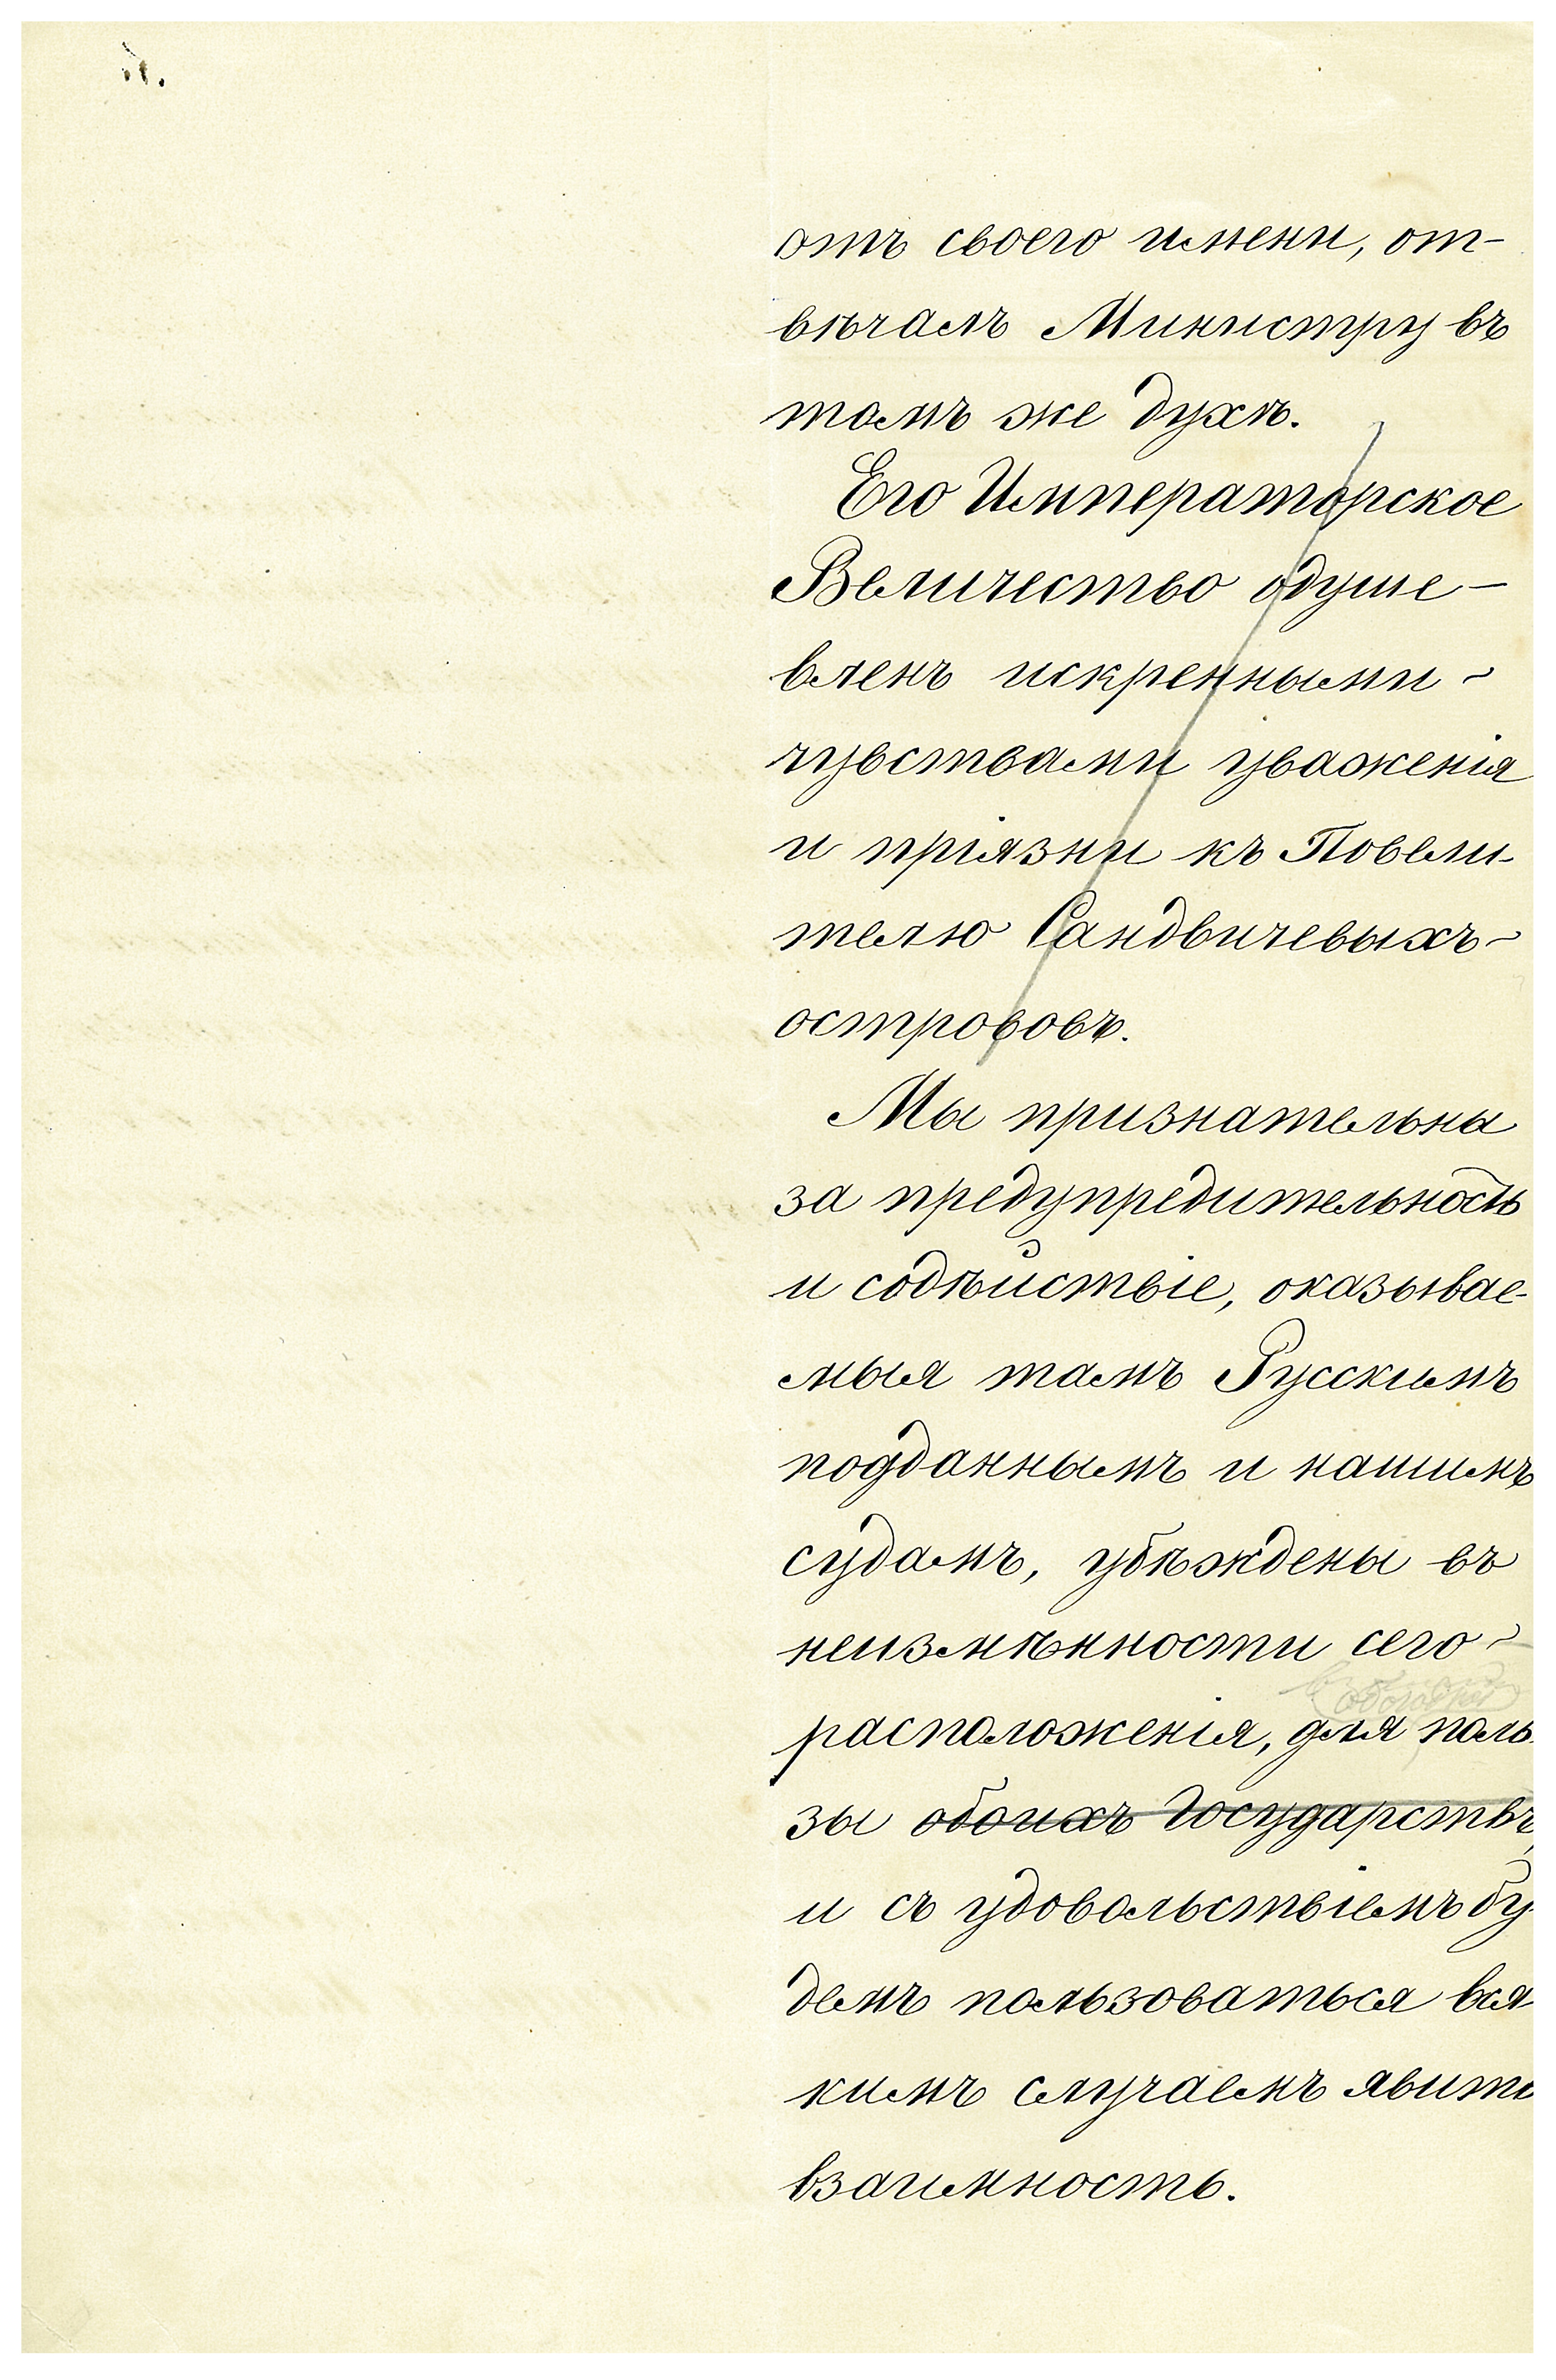 отъ своего имени, от-
вѣчалъ Министру въ
томъ же духѣ.
Его Императорское
Величество одуше-
вленъ искренными -
чувствами уваженія
и пріязни къ Повели-
телю Сандвичевыхъ-
острововъ.
Мы признательны
за предупредительность
и содѣйствіе, оказывае-
мыя тамъ Русскимъ
подданнымъ и нашимъ
судамъ, убѣждены въ
неизмѣнности сего -
расположенія, для поль-
зы обоихъ Государствъ,
и съ удовольствіемъ бу-
демъ пользоваться вся
кимъ случаемъ явить
взаимность.